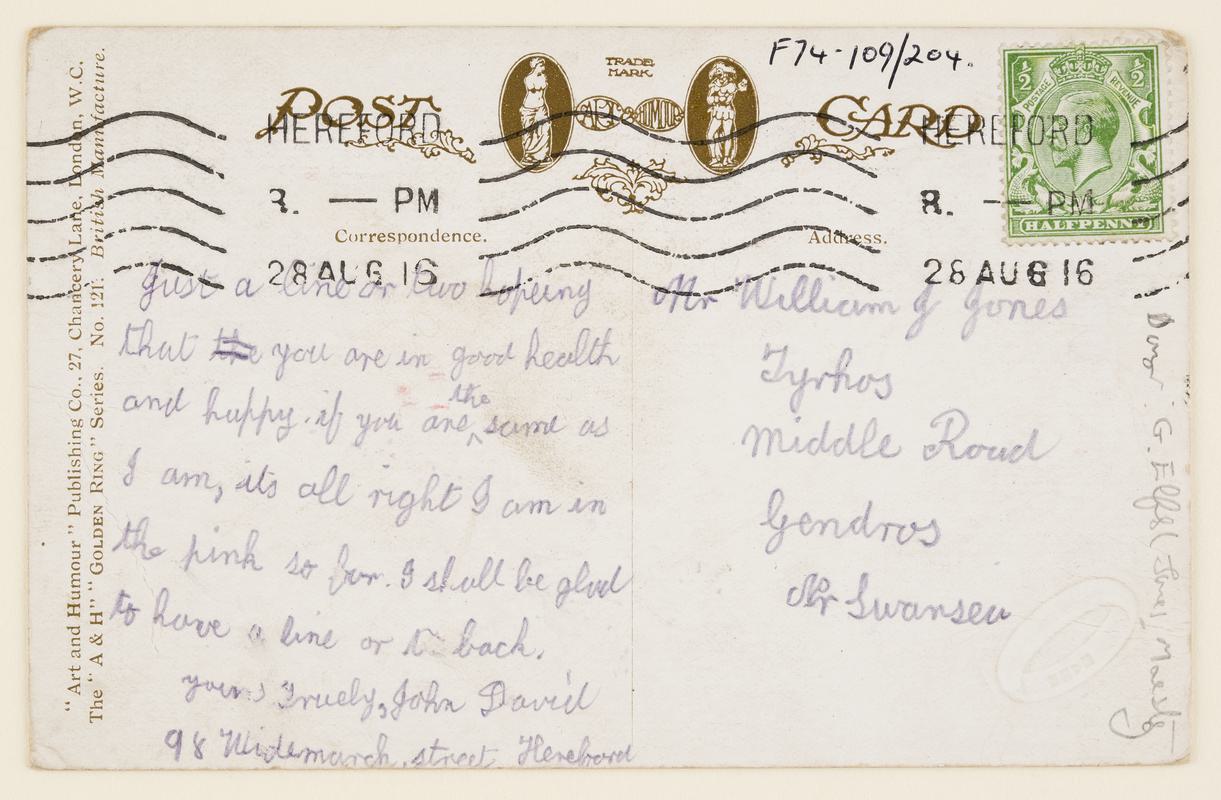 F74-109/204.
POST CARD
TRADE
MARK
ART HUMOUR
HEREFORD
8. — PM
28 AUG 16
HEREFORD
8. — PM
28 AUG 16
½ ½
POSTAGE REVENUE
HALFPENNY
Correspondence.
Address.
Just a line or two hopeing
that the you are in good health
and happy. if you are the same as
I am, its all right I am in
the pink so far. I shall be glad
to have a line or t. back.
yours Truely, John David
98 Widemarch. street Hereford
Mr William J Jones
Tyrhos
Middle Road
Gendros
Nr Swansea
"Art and Humour" Publishing Co., 27, Chancery Lane, London, W.C.
The "A & H" "GOLDEN RING" Series. No. 121. British Manufacture.
Donor: G.